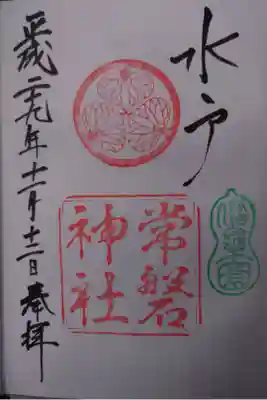 水戸
常磐
神社
平成二十九年十一月十二日奉拝